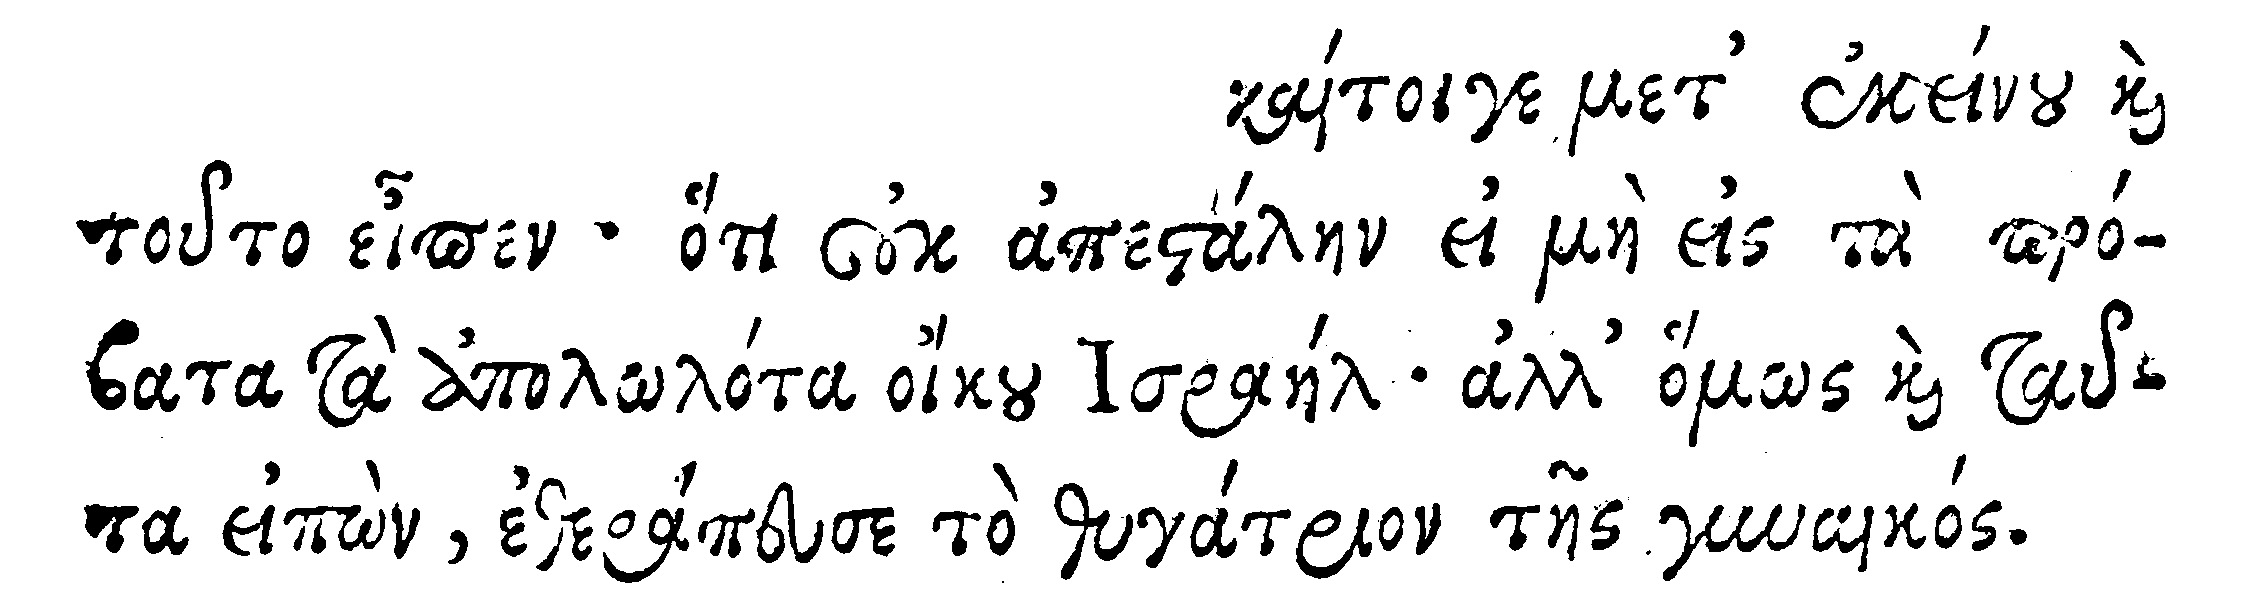 καίτοιγε μετ’ ἐκείνου καὶ
τοῦτο εἶπεν · ὅτι οὐκ ἀπεστάλην εἰ μὴ εἰς τὰ πρό-
βατα τὰ ἀπολωλότα οἴκου Ἰσραήλ · ἀλλ’ ὅμως καὶ ταῦ-
τα εἰπὼν, ἐθεράπευσε τὸ θυγάτριον τῆς γυναικός.